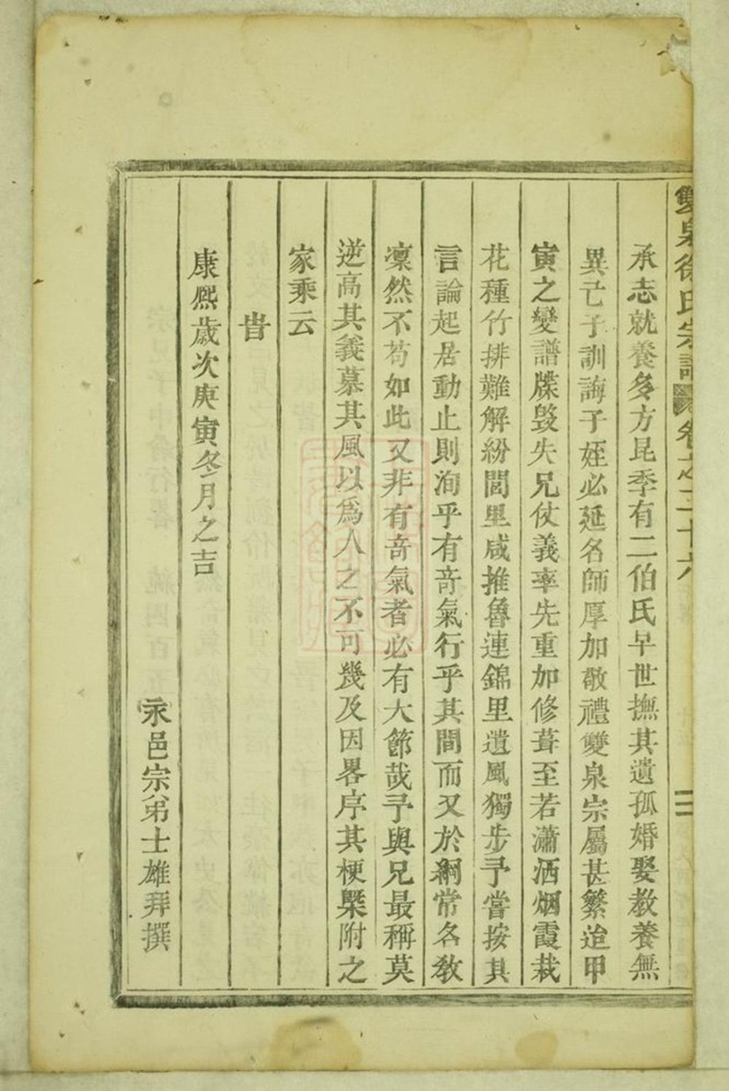 雙泉徐氏宗譜 卷之二十六
承志就養多方昆季有二伯氏早世撫其遺孤婚娶教養無
異己子訓誨子姪必延名師厚加敬禮雙泉宗屬甚繁迨甲
寅之變譜牒毀失兄仗義率先重加修葺至若瀟洒烟霞栽
花種竹排難解紛閭里咸推魯連錦里遺風獨步予嘗按其
言論起居動止則洵乎有竒氣行乎其間而又於綱常名敎
凜然不苟如此又非有竒氣者必有大節哉予與兄最稱莫
逆高其義慕其風以爲人之不可幾及因畧序其梗槩附之
家乘云
旹
康熙歲次庚寅冬月之吉
永邑宗弟士雄拜撰